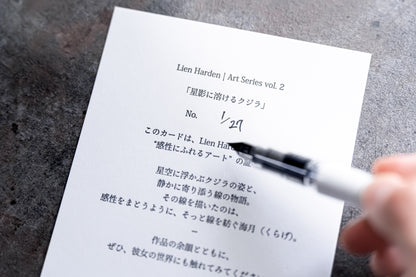 Lien Harden | Art Series vol. 2
「星影に溶けるクジラ」
No. 1/27
このカードは、Lien Har
“感性にふれるアート”の
星空に浮かぶクジラの姿と、
静かに寄り添う線の物語。
その線を描いたのは、
感性をまとうように、そっと線を紡ぐ海月（くらげ）。
ー
作品の余韻とともに、
ぜひ、彼女の世界にも触れてみてくだ